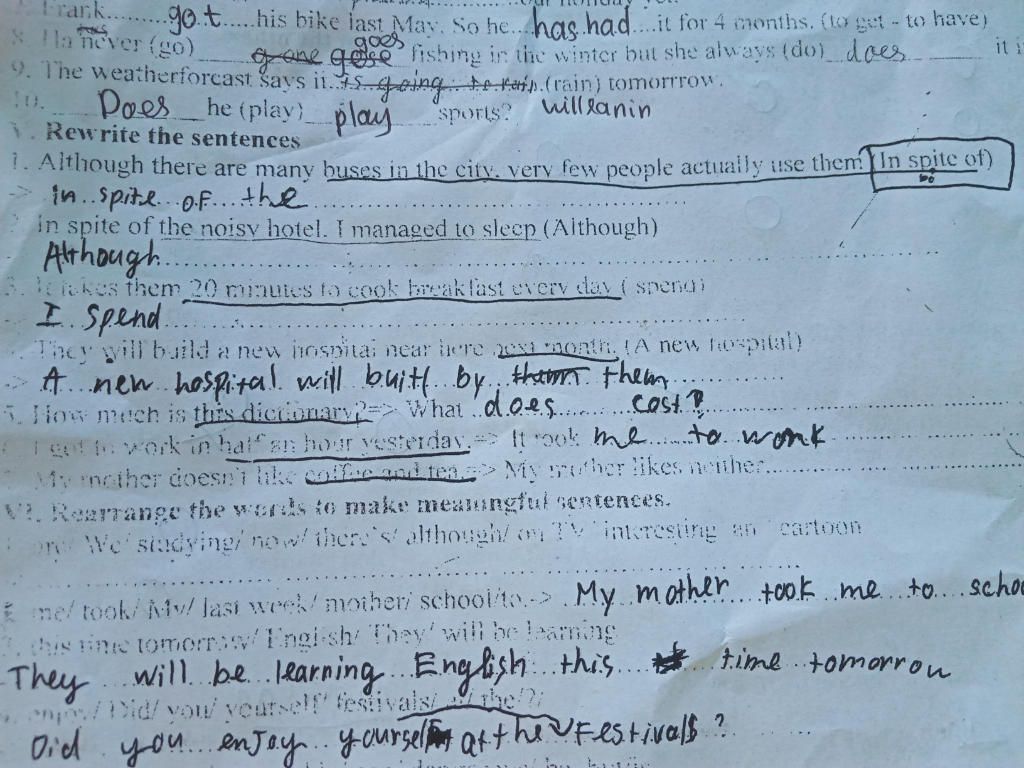 Frank.........got.....his bike last May. So he...has had....it for 4 months. (to get - to have)
8. Ha never (go) goes fishing in the winter but she always (do) does it i
9. The weatherforcast says it..is going to rain.(rain) tomorrrow.
10. Does he (play) play sports? willranin
V. Rewrite the sentences
1. Although there are many buses in the city, very few people actually use them (In spite of)
-> in spite of the
in spite of the noisy hotel. I managed to sleep (Although)
Although
3. It takes them 20 minutes to cook breakfast every day ( spend)
I spend
They will build a new hospital near here next month. (A new hospital)
-> A new hospital will built by them
5. How much is this dictionary?=> What does cost?
I got to work in half an hour yesterday.=> It took me to work
My mother doesn't like coffee and tea.=> My mother likes neither
VI. Rearrange the words to make meaningful sentences.
are/ We/ studying/ now/ there's/ although/ on TV/ interesting/ an/ cartoon
me/ took/ My/ last week/ mother/ school/to.-> My mother took me to schoo
this time tomorrow/ English/ They/ will be learning
They will be learning English this time tomorrou
enjoy/ Did/ you/ yourself/ festivals/ at/ the/?/
Did you enjoy yourself at the festivals ?